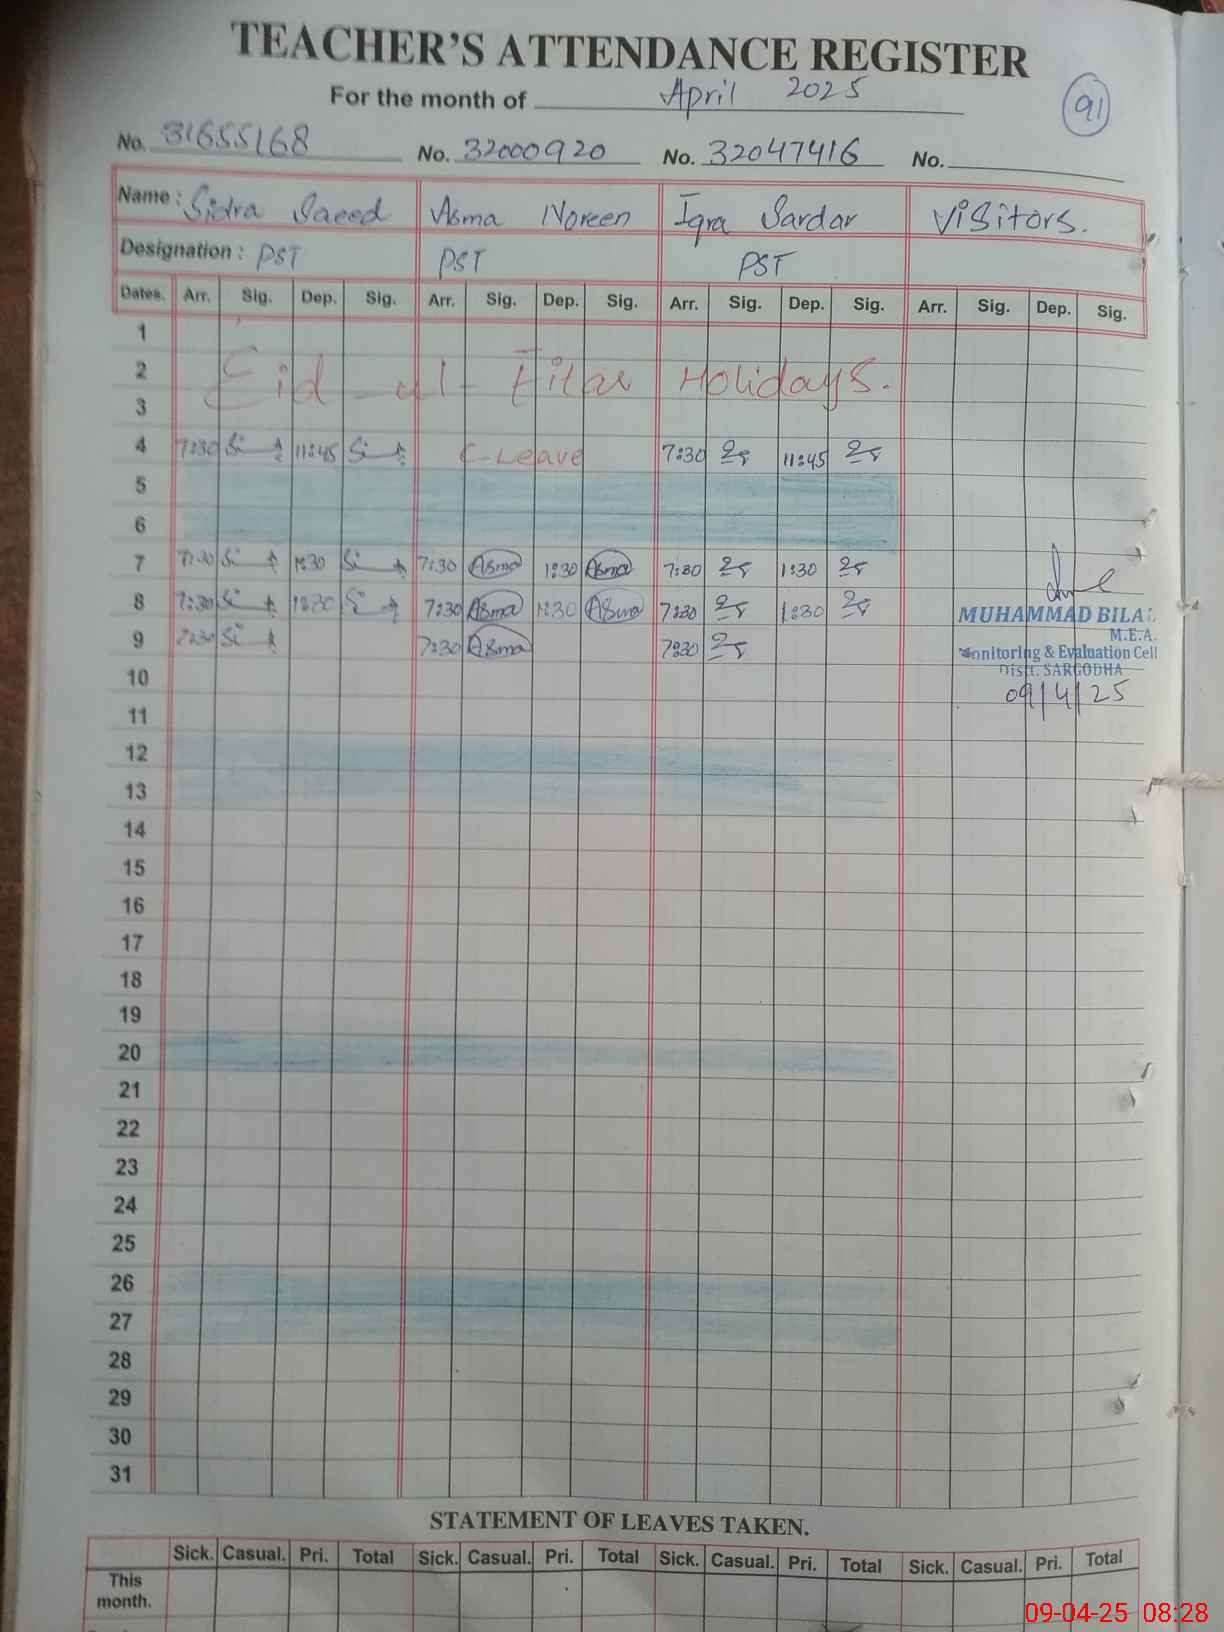 TEACHER'S ATTENDANCE REGISTER
For the month of April 2025
91
No. 31655168 No. 32000920 No. 32047416 No.
Name : Sidra Saeed Asma Noreen Iqra Sardar Visitors.
Designation : PST PST PST
Dates. Arr. Sig. Dep. Sig. Arr. Sig. Dep. Sig. Arr. Sig. Dep. Sig. Arr. Sig. Dep. Sig.
1
2 Eid-ul-Fitar Holidays.
3
4 7:30 11:45 C-Leave 7:30 11:45
5
6
7 7:30 1:30 7:30 Asma 1:30 Asma 7:30 1:30
8 7:30 1:30 7:30 Asma 1:30 Asma 7:30 1:30
MUHAMMAD BILAL
M.E.A.
9 7:30 7:30 Asma 7:30
Monitoring & Evaluation Cell
Distt. SARGODHA
09/4/25
10
11
12
13
14
15
16
17
18
19
20
21
22
23
24
25
26
27
28
29
30
31
STATEMENT OF LEAVES TAKEN.
Sick. Casual. Pri. Total Sick. Casual. Pri. Total Sick. Casual. Pri. Total Sick. Casual. Pri. Total
This
month.
09-04-25 08:28